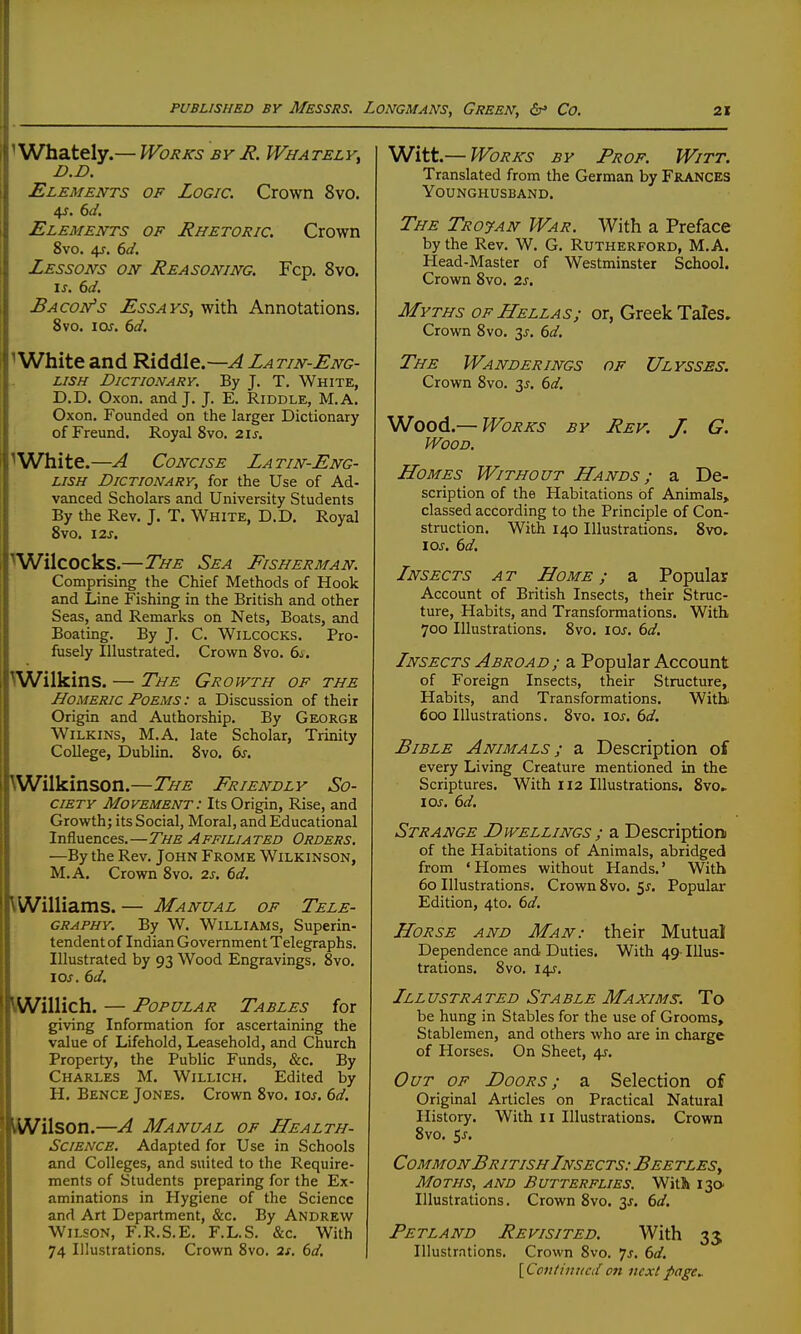 PUBLISHED BY MESSRS. LONGMANS, GREEN, & CO. 21
Whately.—WORKS BY R. WHATELY,
D.D.
ELEMENTS OF LOGIC. Crown 8vo.
4s. 6d.
ELEMENTS OF RHETORIC. Crown
8vo. 4s. 6d.
LESSONS ON REASONING. Fcp. 8vo.
1s. 6d.
BACON'S ESSAYS, with Annotations.
8vo. 10s. 6d.
White and Riddle.—A LATIN-ENG-
LISH DICTIONARY. By J. T. WHITE,
D.D. Oxon. and J. J. E. RIDDLE, M.A.
Oxon. Founded on the larger Dictionary
of Freund. Royal 8vo. 21s.
White.—A CONCISE LATIN-ENG-
LISH DICTIONARY, for the Use of Ad-
vanced Scholars and University Students
By the Rev. J. T. WHITE, D.D. Royal
8vo. 12s.
Wilcocks.—THE SEA FISHERMAN.
Comprising the Chief Methods of Hook
and Line Fishing in the British and other
Seas, and Remarks on Nets, Boats, and
Boating. By J. C. WILCOCKS. Pro-
fusely Illustrated. Crown 8vo. 6s.
Wilkins. — THE GROWTH OF THE
HOMERIC POEMS: a Discussion of their
Origin and Authorship. By GEORGE
WILKINS, M.A. late Scholar, Trinity
College, Dublin. 8vo. 6s.
Wilkinson.—THE FRIENDLY SO-
CIETY MOVEMENT: Its Origin, Rise, and
Growth; its Social, Moral, and Educational
Influences.—THE AFFILIATED ORDERS.
—By the Rev. JOHN FROME WILKINSON,
M.A. Crown 8vo. 2s. 6d.
Williams. — MANUAL OF TELE-
GRAPHY. By W. WILLIAMS, Superin-
tendent of Indian Government Telegraphs.
Illustrated by 93 Wood Engravings. 8vo.
10s. 6d.
Willich. — POPULAR TABLES for
giving Information for ascertaining the
value of Lifehold, Leasehold, and Church
Property, the Public Funds, &c. By
CHARLES M. WILLICH. Edited by
H. BENCE JONES. Crown 8vo. 10s. 6d.
Wilson.—A MANUAL OF HEALTH-
SCIENCE. Adapted for Use in Schools
and Colleges, and suited to the Require-
ments of Students preparing for the Ex-
aminations in Hygiene of the Science
and Art Department, &c. By ANDREW
WILSON, F.R.S.E. F.L.S. &c. With
74 Illustrations. Crown 8vo. 2s. 6d.
Witt.—WORKS BY PROF. WITT.
Translated from the German by FRANCES
YOUNGHUSBAND.
THE TROJAN WAR. With a Preface
by the Rev. W. G. RUTHERFORD, M.A.
Head-Master of Westminster School.
Crown 8vo. 2s.
MYTHS OF HELLAS; or, Greek Tales.
Crown 8vo. 3s. 6d.
THE WANDERINGS OF ULYSSES.
Crown 8vo. 3s. 6d.
Wood.—WORKS BY REV. J. G.
WOOD.
HOMES WITHOUT HANDS; a De-
scription of the Habitations of Animals,
classed according to the Principle of Con-
struction. With 140 Illustrations. 8vo.
10s. 6d.
INSECTS AT HOME; a Popular
Account of British Insects, their Struc-
ture, Habits, and Transformations. With
700 Illustrations. 8vo. 10s. 6d.
INSECTS ABROAD; a Popular Account
of Foreign Insects, their Structure,
Habits, and Transformations. With
600 Illustrations. 8vo. 10s. 6d.
BIBLE ANIMALS; a Description of
every Living Creature mentioned in the
Scriptures. With 112 Illustrations. 8vo.
10s. 6d.
STRANGE DWELLINGS; a Description
of the Habitations of Animals, abridged
from ‘Homes without Hands.’ With
60 Illustrations. Crown 8vo. 5s. Popular
Edition, 4to. 6d.
HORSE AND MAN: their Mutual
Dependence and Duties. With 49 Illus-
trations. 8vo. 14s.
ILLUSTRATED STABLE MAXIMS. To
be hung in Stables for the use of Grooms,
Stablemen, and others who are in charge
of Horses. On Sheet, 4s.
OUT OF DOORS; a Selection of
Original Articles on Practical Natural
History. With 11 Illustrations. Crown
8vo. 5s.
COMMON BRITISH INSECTS: BEETLES,
MOTHS, AND BUTTERFLIES. With 130
Illustrations. Crown 8vo. 3s. 6d.
PETLAND REVISITED. With 33
Illustrations. Crown 8vo. 7s. 6d.
[Continued on next page.